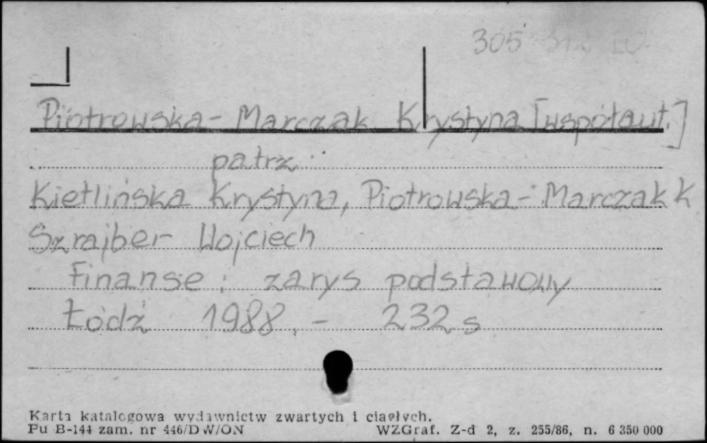 305
Piotrowska-Marczak Krystyna [współaut.]
patrz
Kietlińska Krystyna, Piotrowska-Marczak K
Szrajber Wojciech
Finanse : zarys podstawowy
Łódź 1988. - 232 s
Karta katalogowa wydawnictw zwartych i ciągłych.
Pu B-144 zam. nr 446/DW/ON WZGraf. Z-d 2, z. 255/86, n. 6 350 000